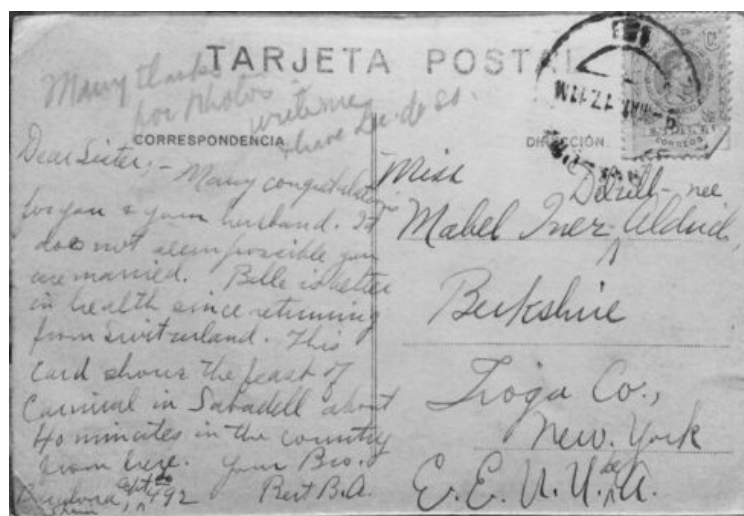 TARJETA POSTAL
Many thanks
for photos
write me
& have Lee. do so.
CORRESPONDENCIA
DIRECCIÓN
Dear Sister;- Many congratulations
for you & your husband. It
does not seem possible you
are married. Belle is better
in health since returning
from Switzerland. This
card shows the feast of
Carnival in Sabadell about
40 minutes in the country
from here. Your Bro.
Barcelona, 492 Bert B.A.
Spain
Miss
nee
Mabel Inez Aldrich,
Berkshire
Tioga Co.,
New. York
E.E.U.U. de A.
CORREOS